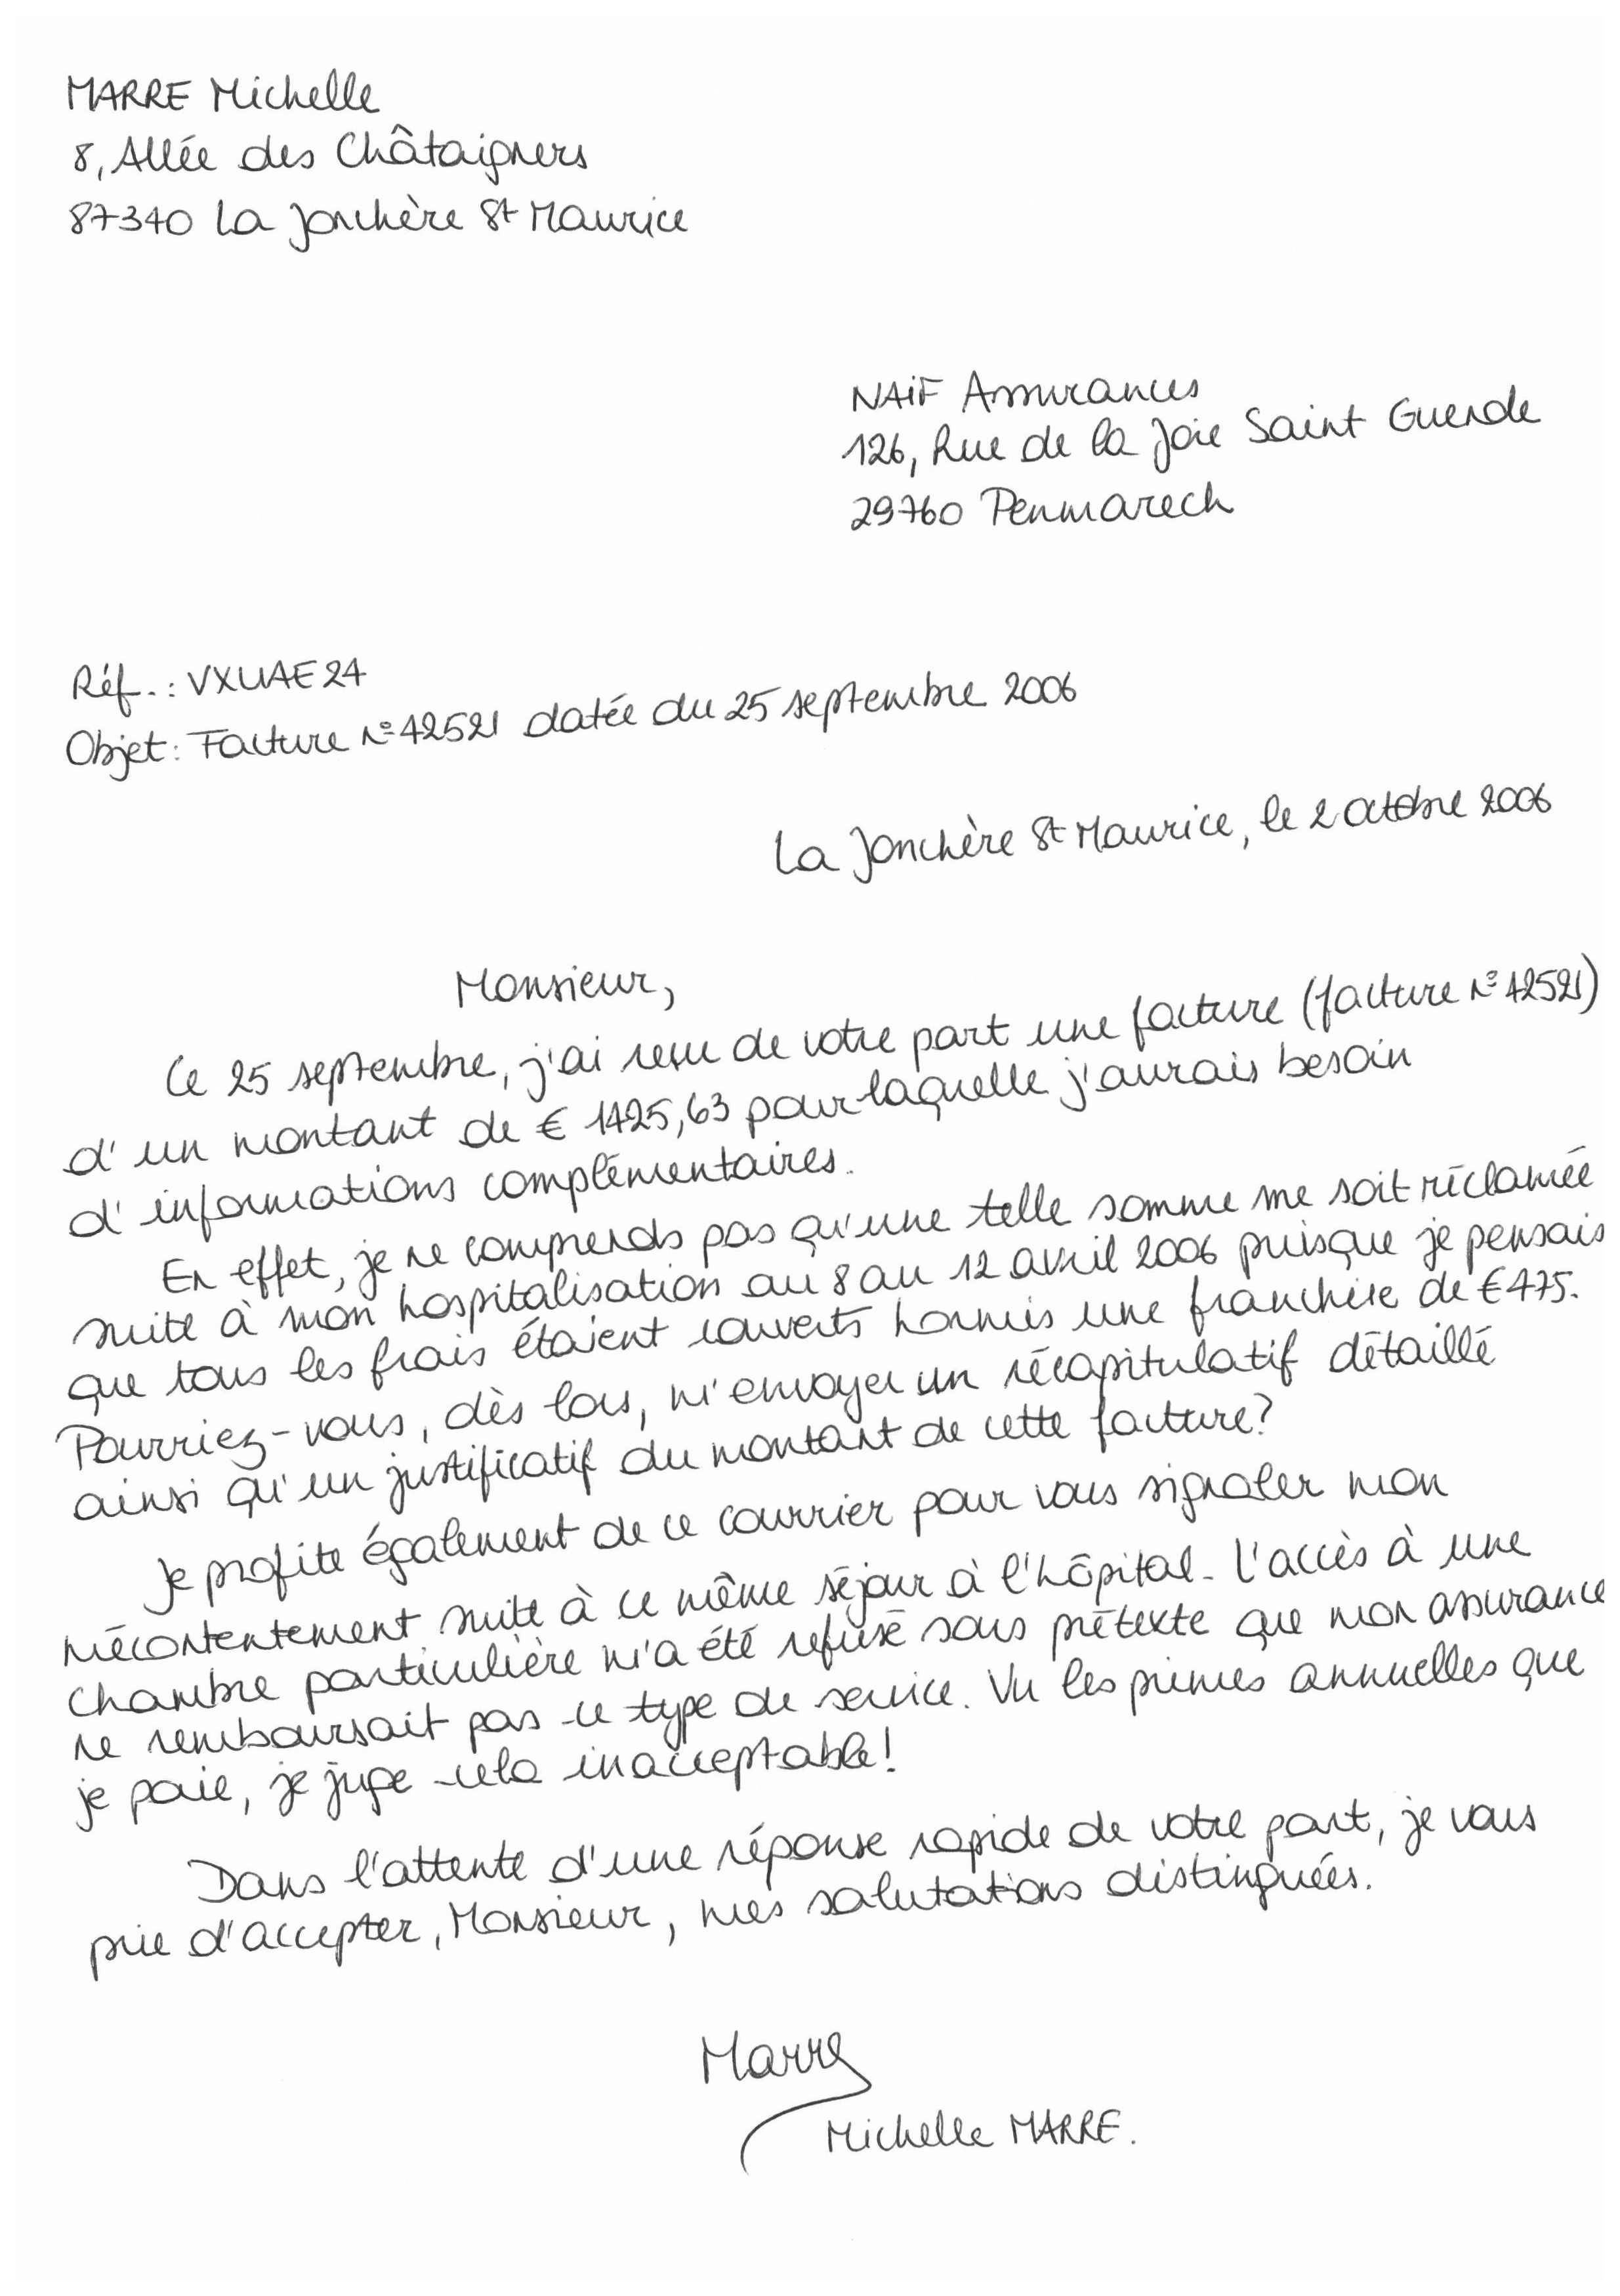 MARRE Michelle
8, Allée des Châtaigners
87340 La Jonchère St Maurice
NAïF Assurances
126, Rue de la Joie Saint Guende
29760 Penmarech
Réf.: VXUAE24
Objet: Facture N° 42521 datée du 25 septembre 2006
La Jonchère St Maurice, le 2 octobre 2006
Monsieur,
Ce 25 septembre, j'ai reçu de votre part une facture (facture N° 42521)
d'un montant de € 1425,63 pour laquelle j'aurais besoin
d'informations complémentaires.
En effet, je ne comprends pas qu'une telle somme me soit réclamée
suite à mon hospitalisation au 8 au 12 avril 2006 puisque je pensais
que tous les frais étaient couverts hormis une franchise de € 475.
Pourriez-vous, dès lors, m'envoyer un récapitulatif détaillé
ainsi qu'un justificatif du montant de cette facture?
Je profite également de ce courrier pour vous signaler mon
mécontentement suite à ce même séjour à l'hôpital. L'accès à une
chambre particulière m'a été refusé sous prétexte que mon assurance
ne remboursait pas ce type de service. Vu les primes annuelles que
je paie, je juge cela inacceptable!
Dans l'attente d'une réponse rapide de votre part, je vous
prie d'accepter, Monsieur, mes salutations distinguées.
Marre
Michelle MARRE.